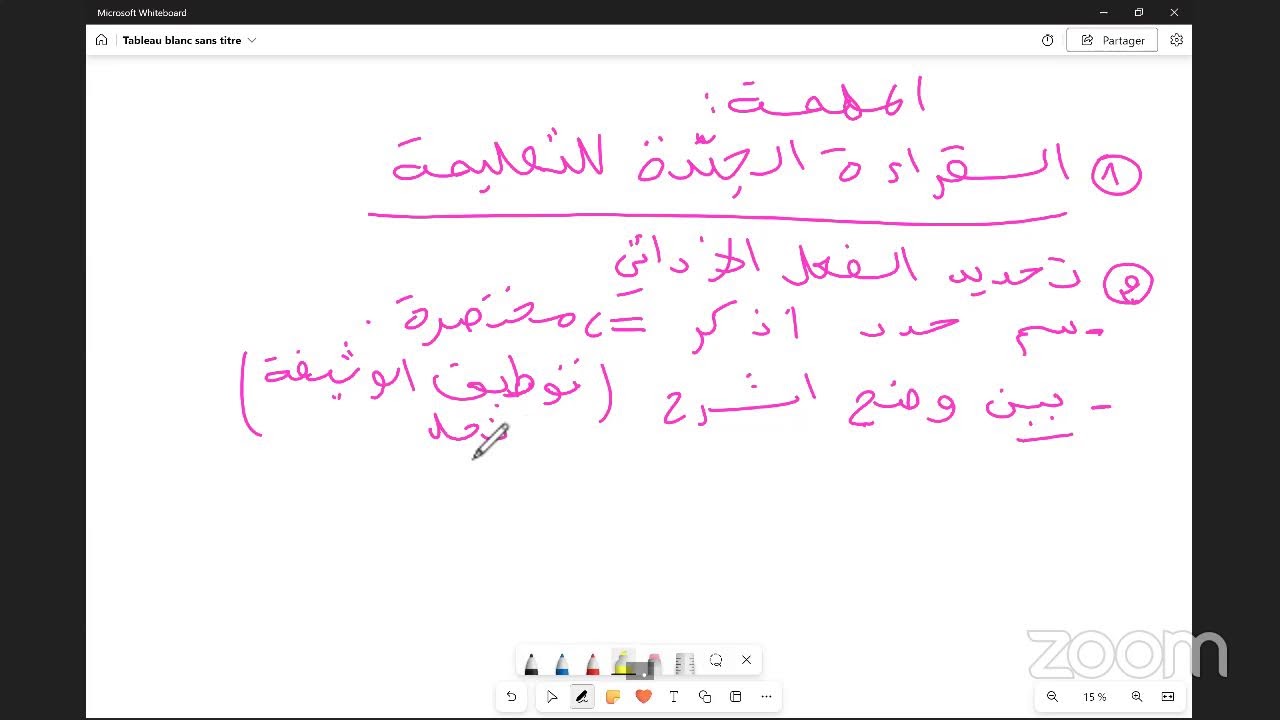 Microsoft Whiteboard
Tableau blanc sans titre
Partager
المهمة :
① القراءة الجيّدة للتعليمة
② تحديد الفعل الاذائي
- سم حدد اذكر = مختصرة .
- بين وضح اشرح (توظيف الوثيقة)
15 %
zoom